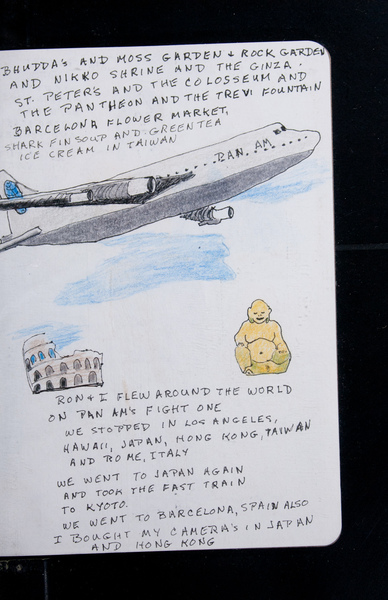 BHUDDA'S AND MOSS GARDEN & ROCK GARDEN
AND NIKKO SHRINE AND THE GINZA.
ST. PETER'S AND THE COLOSSEUM AND
THE PANTHEON AND THE TREVI FOUNTAIN
BARCELONA FLOWER MARKET,
SHARK FIN SOUP AND GREEN TEA
ICE CREAM IN TAIWAN
PAN AM
RON & I FLEW AROUND THE WORLD
ON PAN AM'S FIGHT ONE
WE STOPPED IN LOS ANGELES,
HAWAII, JAPAN, HONG KONG, TAIWAN
AND ROME, ITALY
WE WENT TO JAPAN AGAIN
AND TOOK THE FAST TRAIN
TO KYOTO.
WE WENT TO BARCELONA, SPAIN ALSO
I BOUGHT MY CAMERA'S IN JAPAN
AND HONG KONG